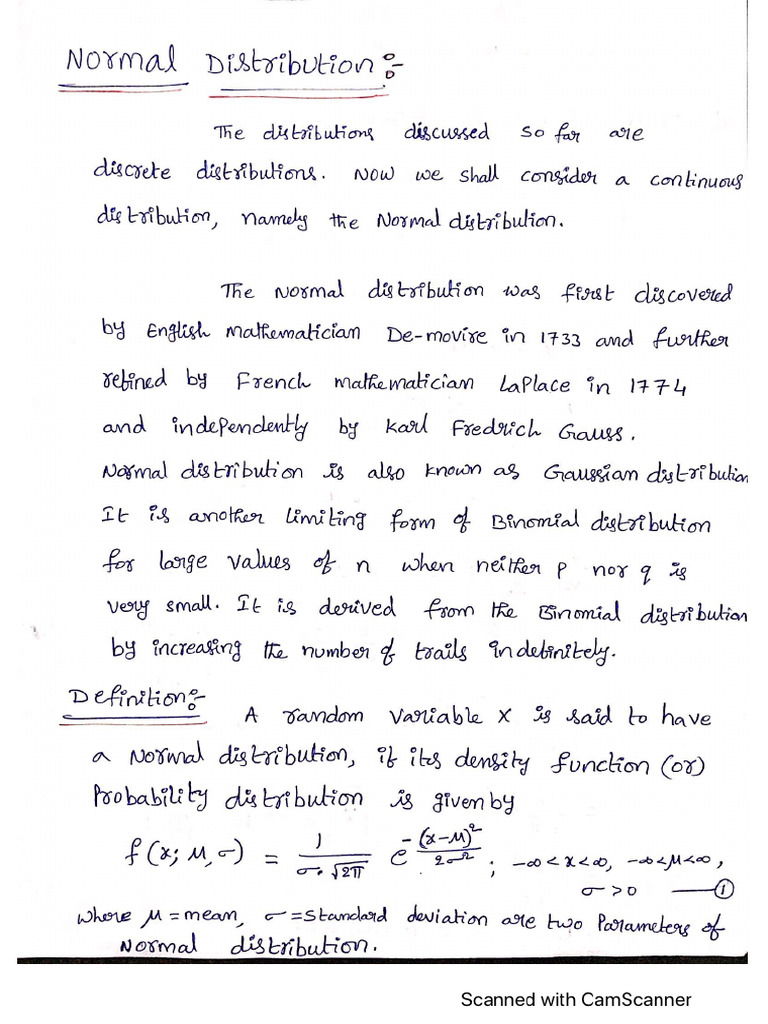 Normal Distribution:-
The distributions discussed so far are
discrete distributions. Now we shall consider a continuous
distribution, namely the Normal distribution.
The Normal distribution was first discovered
by English Mathematician De-movire in 1733 and further
refined by French mathematician LaPlace in 1774
and independently by Karl Fredrich Gauss.
Normal distribution is also known as Gaussian distribution
It is another limiting form of Binomial distribution
for large values of n when neither p nor q is
very small. It is derived from the Binomial distribution
by increasing the number of trails indefinitely.
Definition:- A random variable X is said to have
a Normal distribution, if its density function (or)
Probability distribution is given by
f(x; μ, σ) = 1/(σ·√2π) e^(-(x-μ)²/2σ²) ; -∞<x<∞, -∞<μ<∞,
σ>0 —①
where μ=mean, σ=standard deviation are two Parameters of
Normal distribution.
Scanned with CamScanner